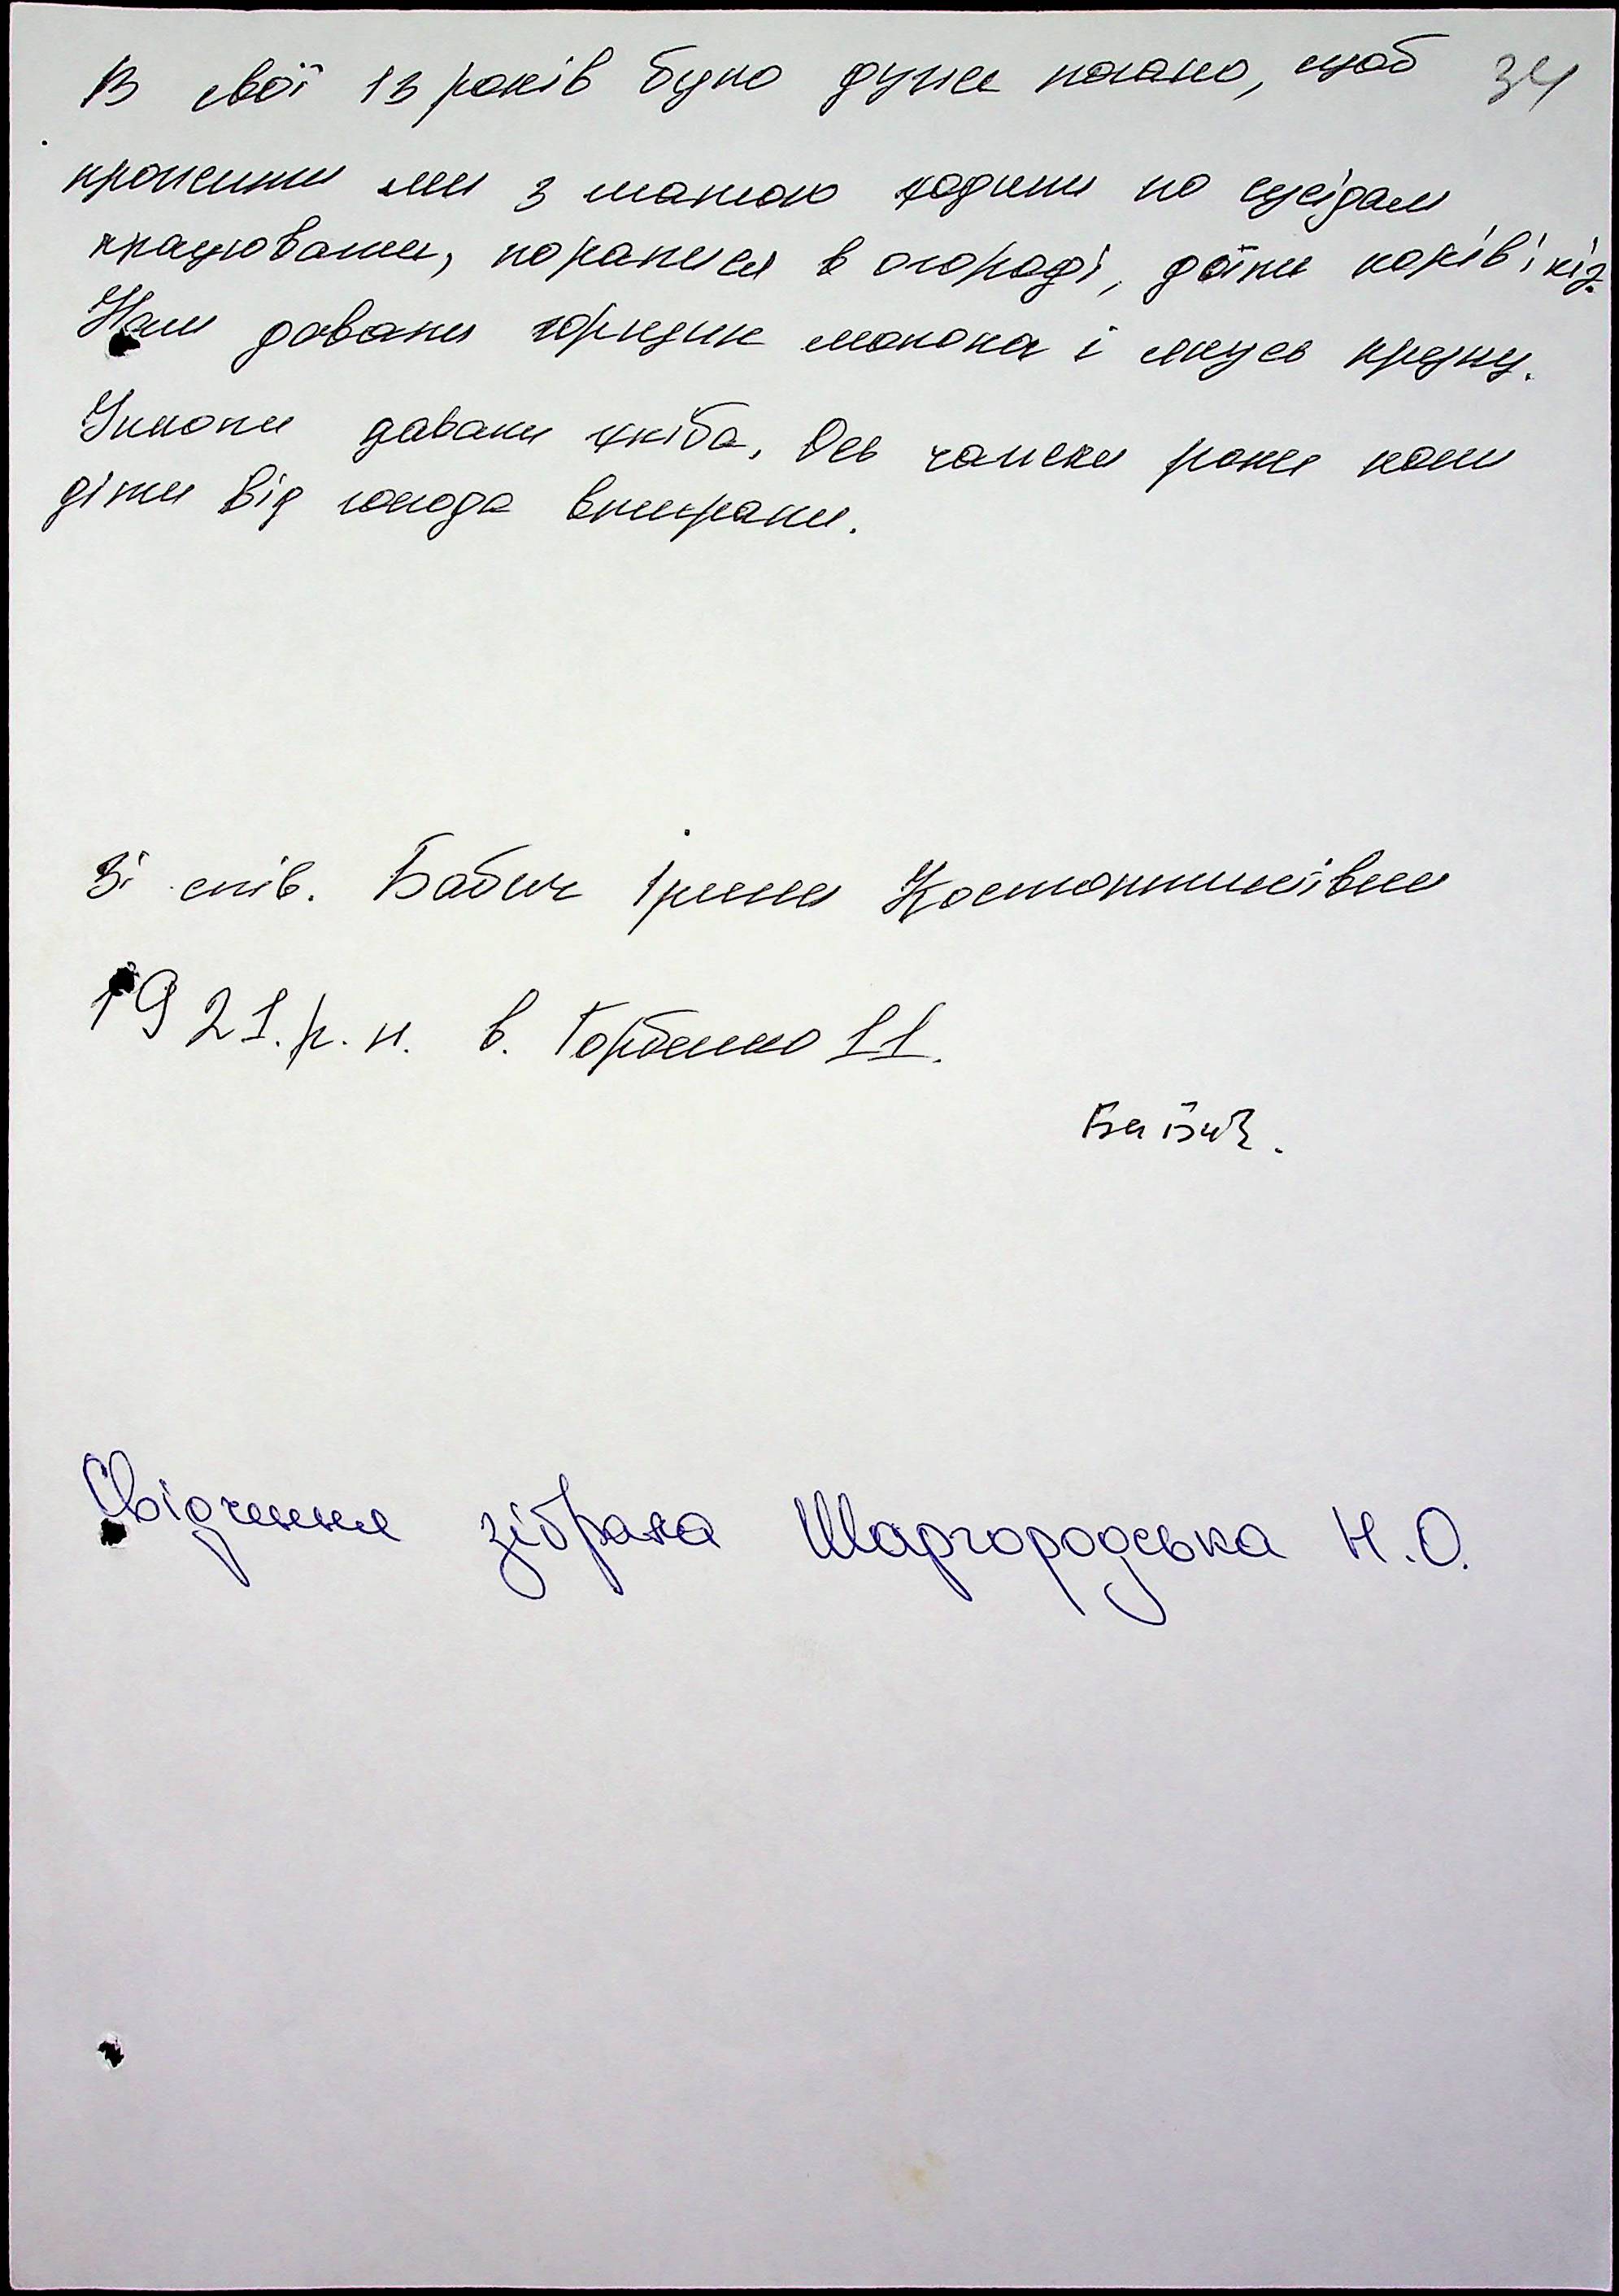 В свої 13 років було дуже погано, щоб 34
прожити ми з матою ходили по сусідам
працювати, поралися в огороді, доїли корів і кіз.
Нам давали горщик молока і якусь крупу.
Інколи давали хліба. Ось такими роки коли
діти від голода вмирали.
Зі слів. Бабич Ірини Костянтинівни
1921.р.н. в. Горбенко 11.
Бабич.
Свідчення зібрала Шаргородська Н.О.